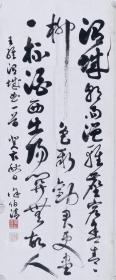 渭城朝雨浥輕塵客舍青青
柳色新勸君更盡
一杯酒西出陽關無故人
王維渭城曲一首